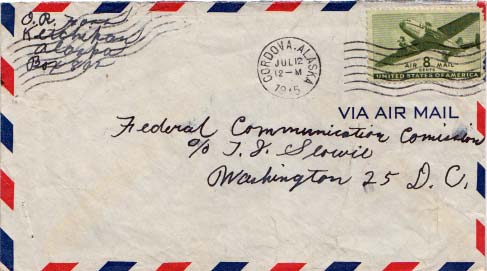 O. R.
Ketchikan
Alaska
Box
CORDOVA, ALASKA
JUL 12
12-M
1945
AIR 8 MAIL
CENTS
UNITED STATES OF AMERICA
VIA AIR MAIL
Federal Communication Comission
c/o T. J. Slowie
Washington 25 D.C.